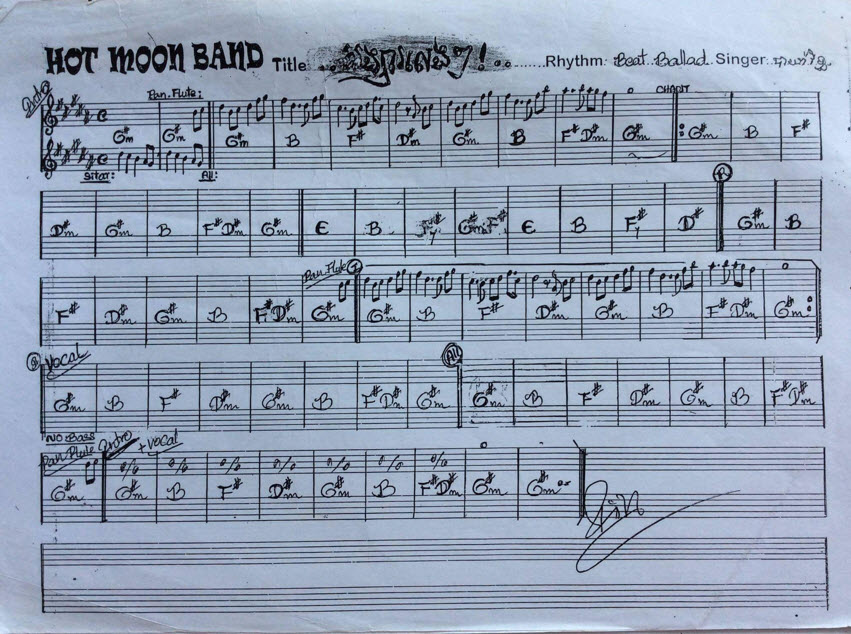 HOT MOON BAND Title Rhythm: Beat Ballad Singer
Intro Pan. Flute: CHANT
G#m G#m G#m B F# D#m G#m B F# D#m G#m G#m B F#
Sitar: All:
B
D#m G#m B F# D#m G#m E B F#7 G#m F# E B F#7 D# G#m B
Pan Flute
F# D#m G#m B F# D#m G#m G#m B F# D#m G#m B F# D#m G#m
2 Vocal All
G#m B F# D#m G#m B F# D#m G#m G#m B F# D#m G#m B F# D#m
NO BASS
Pan Flute Intro + Vocal
G#m G#m B F# D#m G#m B F# D#m G#m G#m